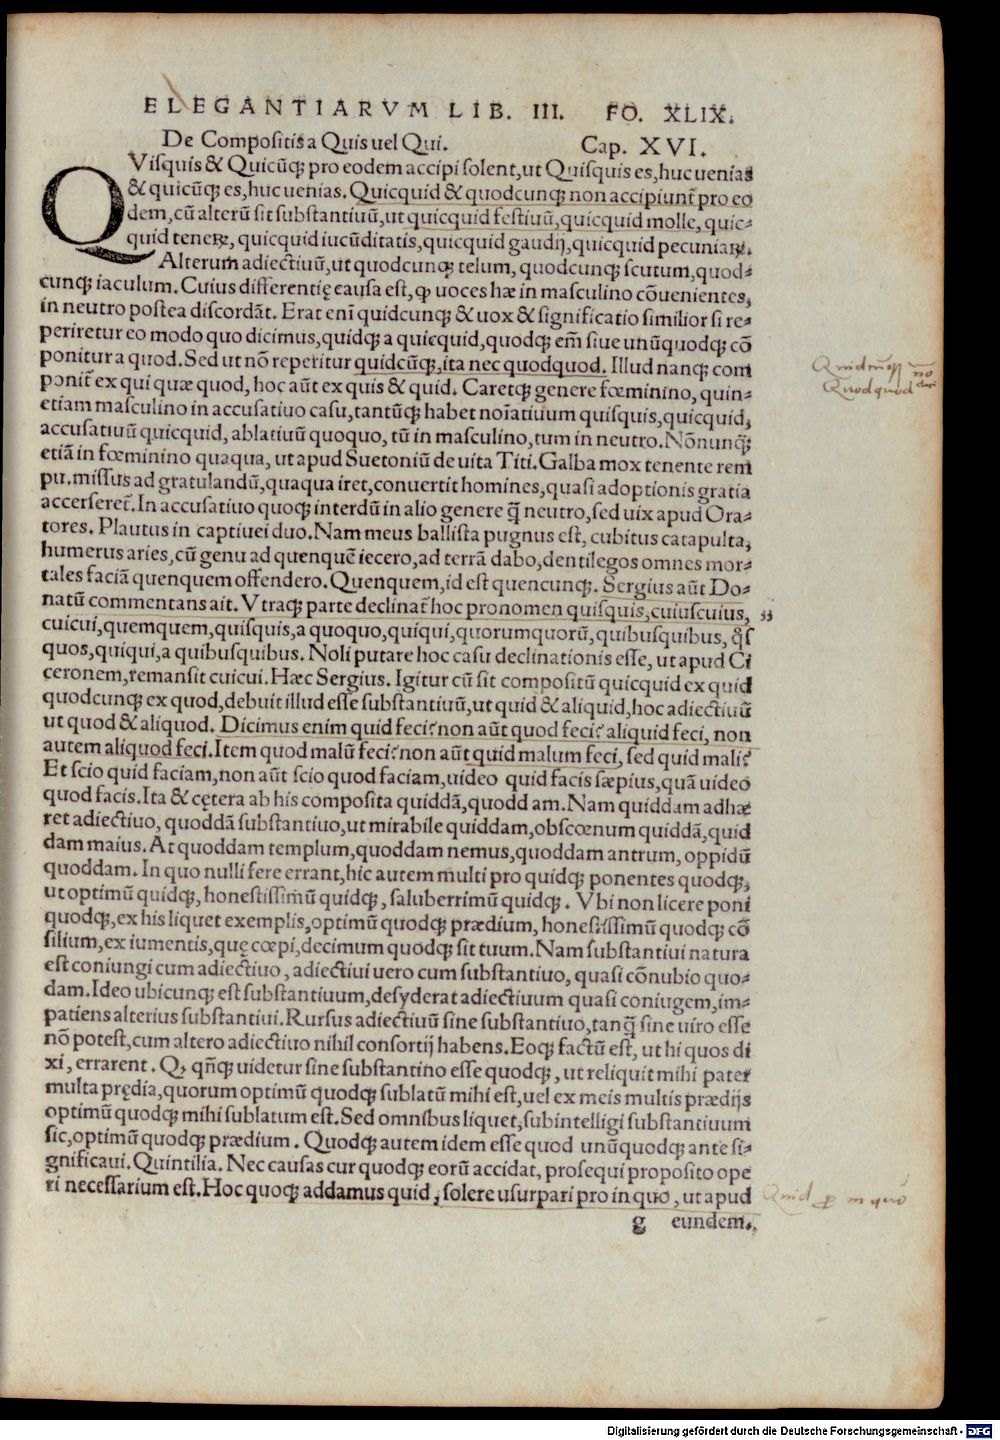 ELEGANTIARVM LIB. III. FO. XLIX.
De Compositis a Quis uel Qui. Cap. XVI.
QVisquis & Quicũqꝫ pro eodem accipi solent, ut Quisquis es, huc uenias
& quicũqꝫ es, huc uenias. Quicquid & quodcunqꝫ non accipiunt̃ pro eo
dem, cũ alterũ sit substantiuũ, ut quicquid festiuũ, quicquid molle, quic⸗
quid teneꝝ, quicquid iucũditatis, quicquid gaudij, quicquid pecuniaꝝ.
Alterum adiectiuũ, ut quodcunqꝫ telum, quodcunqꝫ scutum, quod⸗
cunqꝫ iaculum. Cuius differentię causa est, ꝙ uoces hæ in masculino cõuenientes,
in neutro postea discordãt. Erat enĩ quidcunqꝫ & uox & significatio similior si re⸗
periretur eo modo quo dicimus, quidqꝫ a quicquid, quodqꝫ em̃ siue unũquodqꝫ cõ
ponitur a quod. Sed ut nõ reperitur quidcũqꝫ, ita nec quodquod. Illud nanqꝫ com
ponit̃ ex qui quæ quod, hoc aũt ex quis & quid. Caretqꝫ genere fœminino, quin⸗
etiam masculino in accusatiuo casu, tantũqꝫ habet noĩatiuum quisquis, quicquid,
accusatiuũ quicquid, ablatiuũ quoquo, tũ in masculino, tum in neutro. Nõnunqꝫ
etiã in fœminino quaqua, ut apud Suetoniũ de uita Titi. Galba mox tenente rem
pu. missus ad gratulandũ, quaqua iret, conuertit homines, quasi adoptionis gratia
accerseret̃. In accusatiuo quoqꝫ interdũ in alio genere q̃ neutro, sed uix apud Ora⸗
tores. Plautus in captiuei duo. Nam meus ballista pugnus est, cubitus catapulta,
humerus aries, cũ genu ad quenquẽ iecero, ad terrã dabo, dentilegos omnes mor⸗
tales faciã quenquem offendero. Quenquem, id est quencunqꝫ. Sergius aũt Do⸗
natũ commentans ait. Vtraqꝫ parte declinat̃ hoc pronomen quisquis, cuiuscuius,
cuicui, quemquem, quisquis, a quoquo, quiqui, quorumquorũ, quibusquibus, q̃s
quos, quiqui, a quibusquibus. Noli putare hoc casu declinationis esse, ut apud Ci
ceronem, remansit cuicui. Hæc Sergius. Igitur cũ sit compositũ quicquid ex quid
quodcunqꝫ ex quod, debuit illud esse substantiuũ, ut quid & aliquid, hoc adiectiuũ
ut quod & aliquod. Dicimus enim quid feci? non aũt quod feci? aliquid feci, non
autem aliquod feci. Item quod malũ feci? non aũt quid malum feci, sed quid mali?
Et scio quid faciam, non aũt scio quod faciam, uideo quid facis sæpius, quã uideo
quod facis. Ita & cętera ab his composita quiddã, quodd am. Nam quiddam adhæ
ret adiectiuo, quoddã substantiuo, ut mirabile quiddam, obscœnum quiddã, quid
dam maius. At quoddam templum, quoddam nemus, quoddam antrum, oppidũ
quoddam. In quo nulli fere errant, hic autem multi pro quidqꝫ ponentes quodqꝫ,
ut optimũ quidqꝫ, honestissimũ quidqꝫ, saluberrimũ quidqꝫ. Vbi non licere poni
quodqꝫ, ex his liquet exemplis, optimũ quodqꝫ prædium, honestissimũ quodqꝫ cõ
silium, ex iumentis, quę cœpi, decimum quodqꝫ sit tuum. Nam substantiui natura
est coniungi cum adiectiuo, adiectiui uero cum substantiuo, quasi cõnubio quo⸗
dam. Ideo ubicunqꝫ est substantiuum, desyderat adiectiuum quasi coniugem, im⸗
patiens alterius substantiui. Rursus adiectiuũ sine substantiuo, tanq̃ sine uiro esse
nõ potest, cum altero adiectiuo nihil consortij habens. Eoqꝫ factũ est, ut hi quos di
xi, errarent. Qꝫ qñqꝫ uidetur sine substantino esse quodqꝫ, ut reliquit mihi pater
multa prędia, quorum optimũ quodqꝫ sublatũ mihi est, uel ex meis multis prædijs
optimũ quodqꝫ mihi sublatum est. Sed omnibus liquet, subintelligi substantiuum
sic, optimũ quodqꝫ prædium. Quodqꝫ autem idem esse quod unũquodqꝫ ante si⸗
gnificaui. Quintilia. Nec causas cur quodqꝫ eorũ accidat, prosequi proposito ope
ri necessarium est. Hoc quoqꝫ addamus quid, solere usurpari pro in quo, ut apud
g eundem.
Quidcũqꝫ no
Quodquod
Quid p in quo
Digitalisierung gefördert durch die Deutsche Forschungsgemeinschaft - DFG